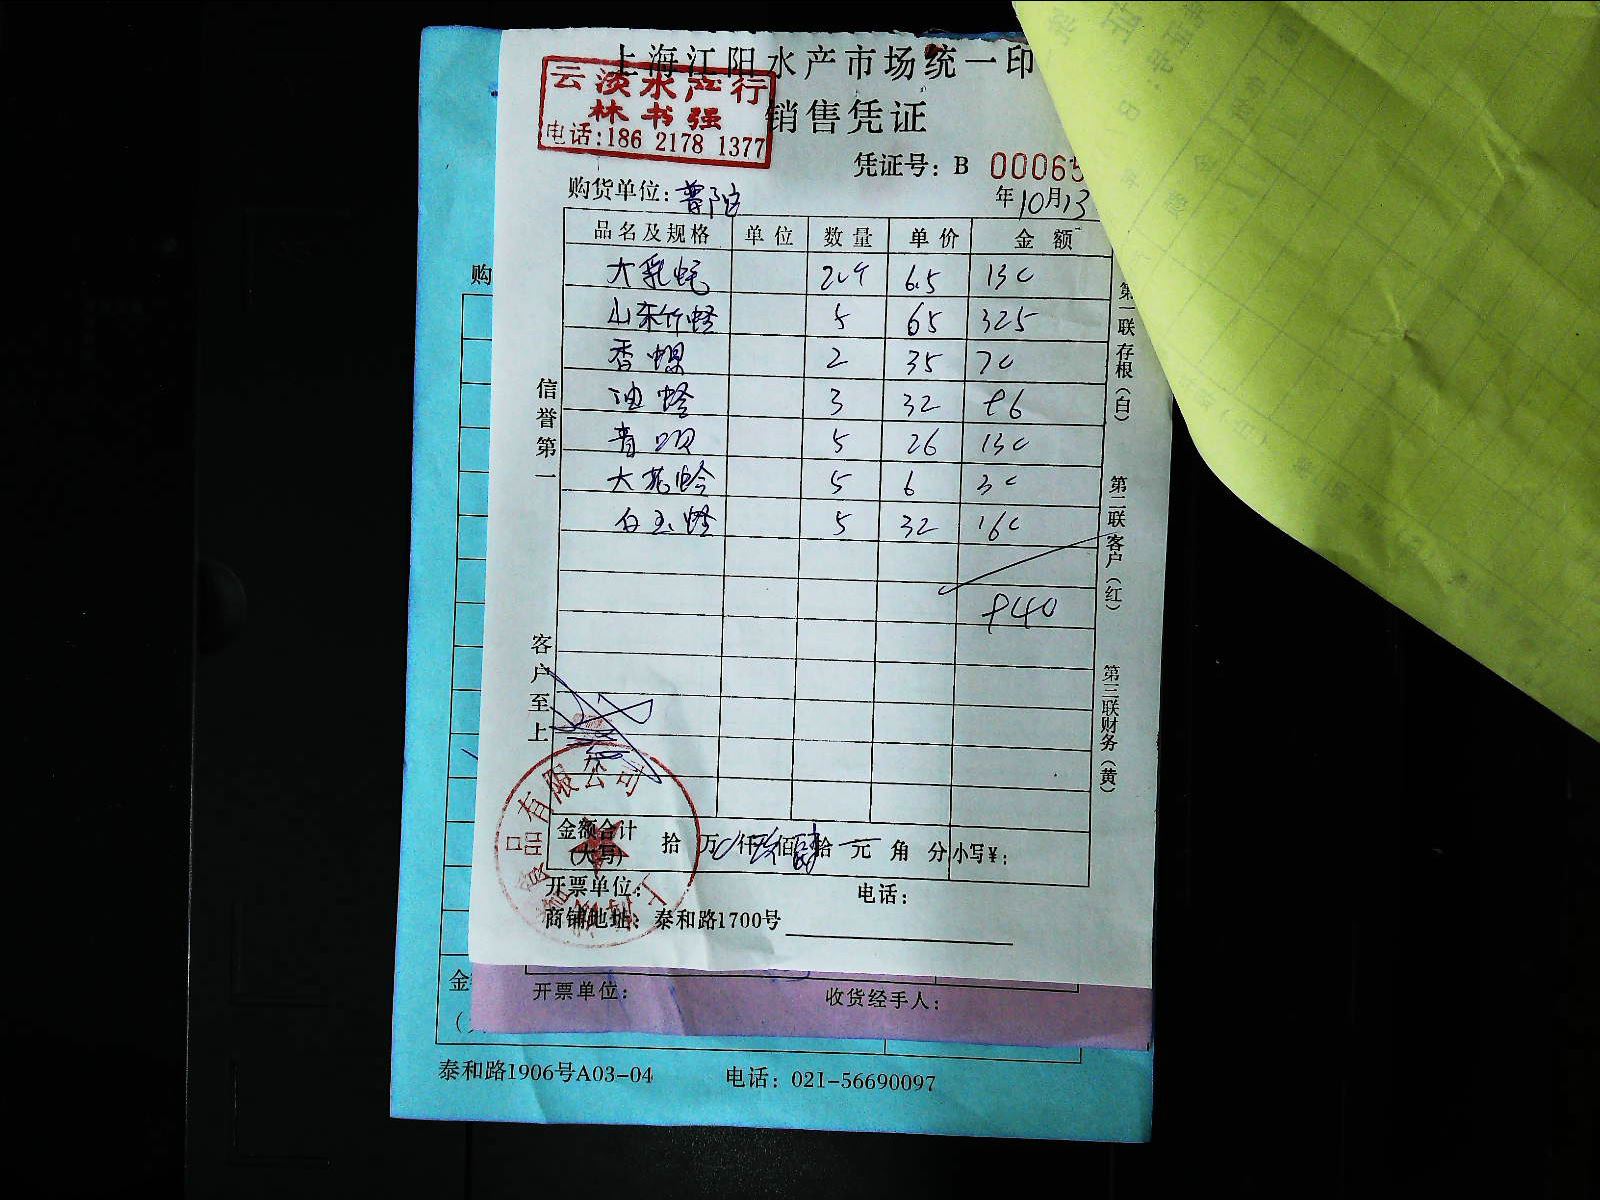 上海江阳水产市场统一印
云淡水产行
林书强
电话:186 2178 1377
销售凭证
凭证号: B 00065
购货单位: 普陀
年10月13
品名及规格 单位 数量 单价 金额
大乳蚝 6.5 130
山东竹蛏 5 65 325
香螺 2 35 70
油蛏 3 32 96
青口贝 5 26 130
大花蛤 5 6 30
白玉蛏 5 32 160
940
信誉第一
客户至上
第一联存根(白)
第二联客户(红)
第三联财务(黄)
金额合计(大写) 拾 万 仟 佰 拾 元 角 分 小写¥:
有限公司
开票单位: 电话:
商铺地址: 泰和路1700号
开票单位: 收货经手人:
购
金
泰和路1906号A03-04 电话: 021-56690097